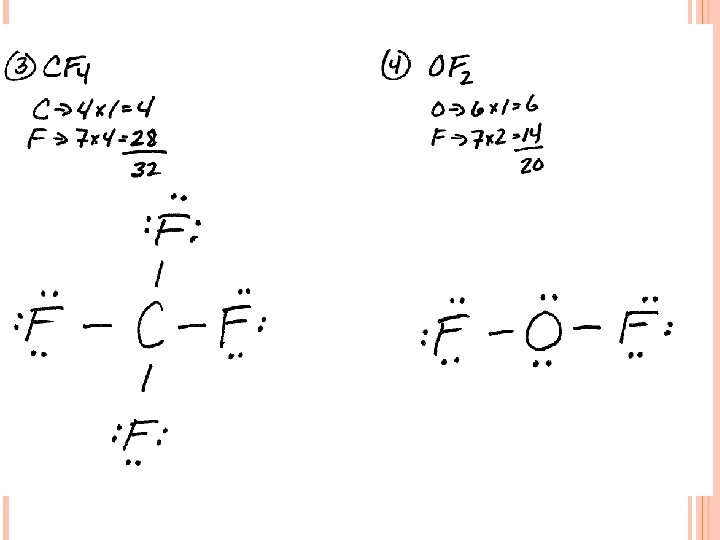 ③ CF₄
C → 4×1 = 4
F → 7×4 = 28
32
:F:
:F – C – F:
:F:
④ OF₂
O → 6×1 = 6
F → 7×2 = 14
20
:F – O – F: